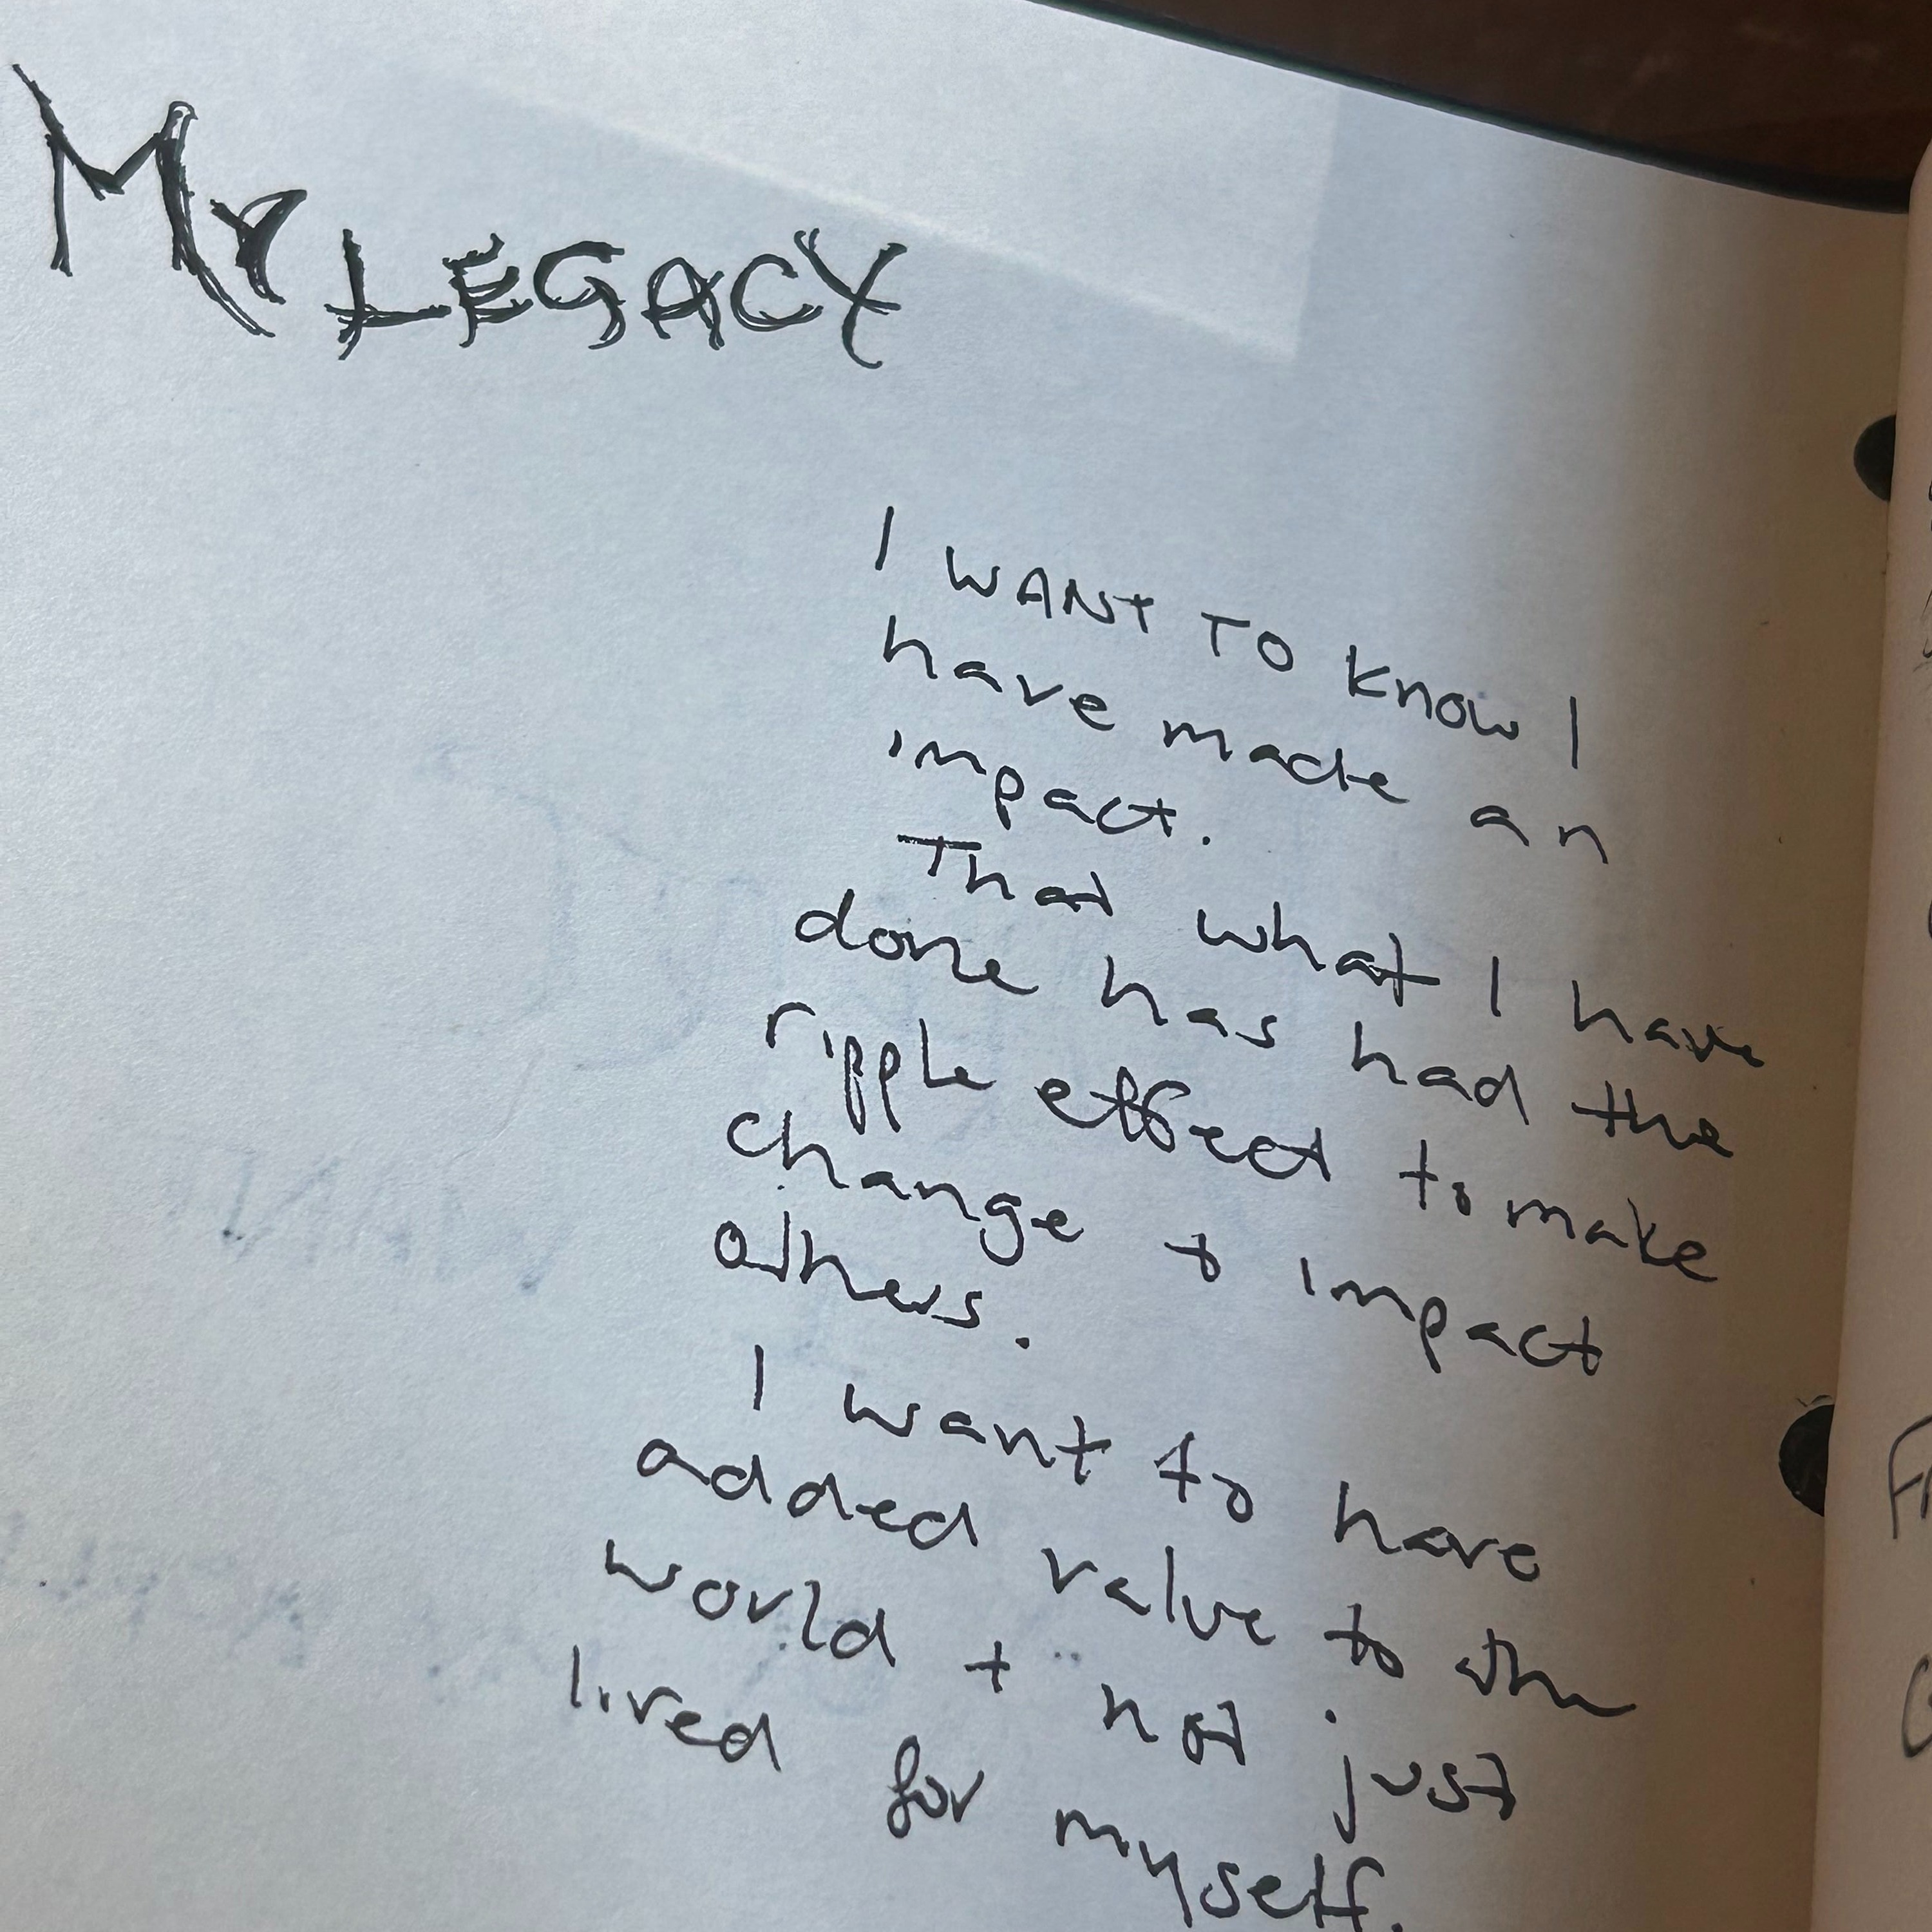 My LEGACY
I WANT TO know I
have made an
impact.
That what I have
done has had the
ripple effect to make
change + impact
others.
I want to have
added value to the
world + not just
lived for myself.